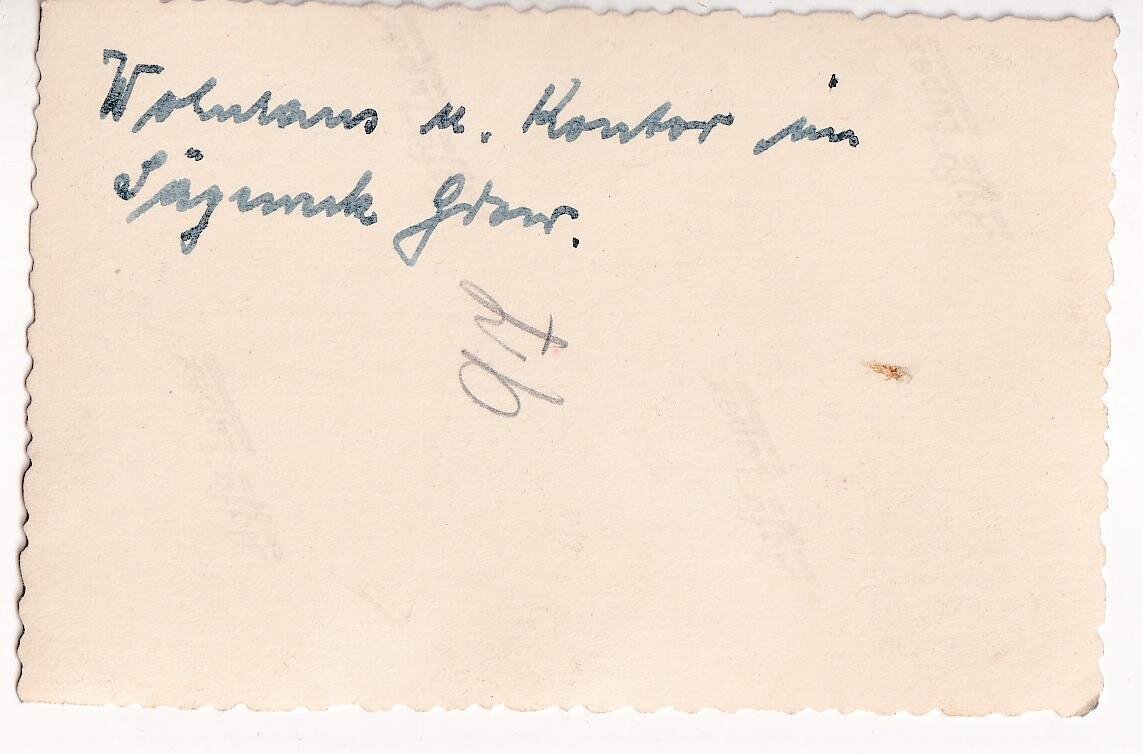 Wohnhaus u. Kontor im
Sägewerk Gdow.